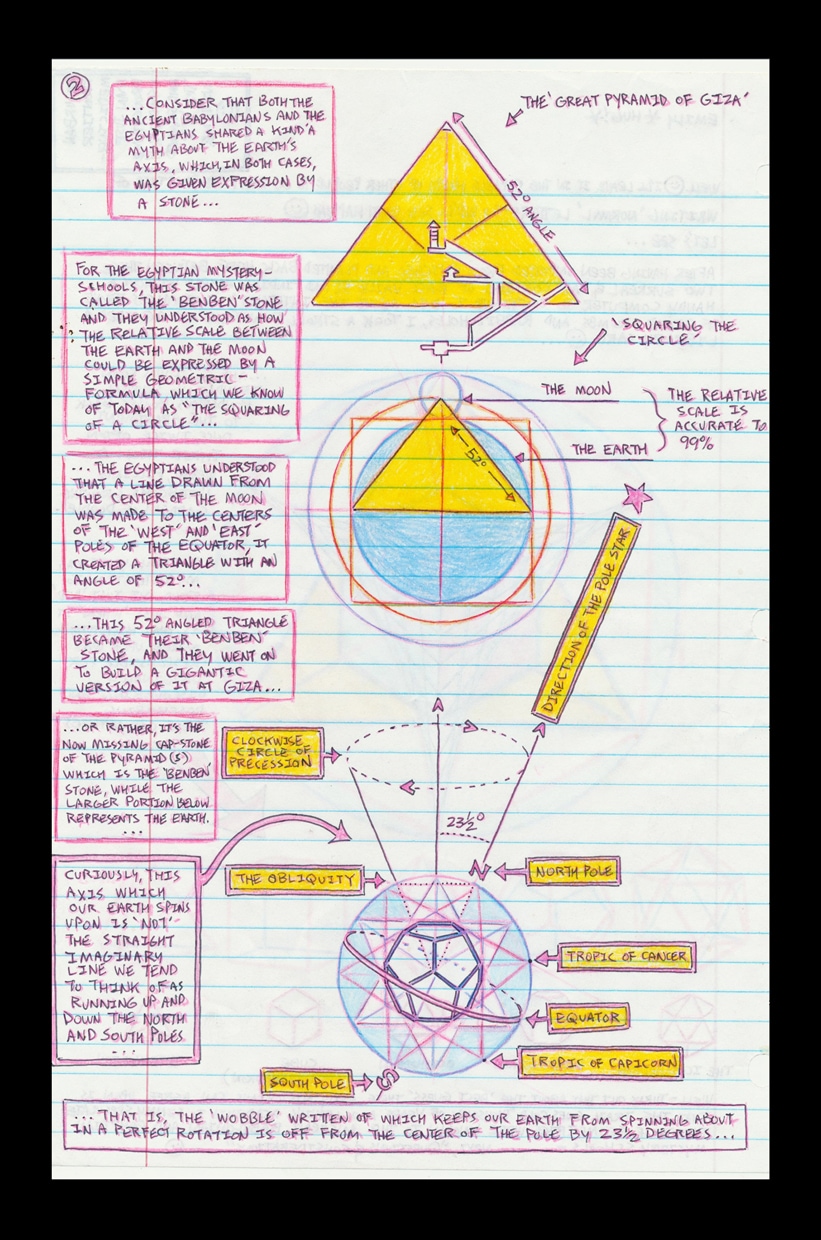 2
...CONSIDER THAT BOTH THE
ANCIENT BABYLONIANS AND THE
EGYPTIANS SHARED A KIND'A
MYTH ABOUT THE EARTH'S
AXIS, WHICH, IN BOTH CASES,
WAS GIVEN EXPRESSION BY
A STONE...
THE 'GREAT PYRAMID OF GIZA'
52º ANGLE
FOR THE EGYPTIAN MYSTERY-
SCHOOLS, THIS STONE WAS
CALLED THE 'BENBEN' STONE
AND THEY UNDERSTOOD AS HOW
THE RELATIVE SCALE BETWEEN
THE EARTH AND THE MOON
COULD BE EXPRESSED BY A
SIMPLE GEOMETRIC-
FORMULA WHICH WE KNOW
OF TODAY AS "THE SQUARING
OF A CIRCLE"...
'SQUARING THE
CIRCLE'
THE MOON
THE EARTH
THE RELATIVE
SCALE IS
ACCURATE TO
99%
52º
...THE EGYPTIANS UNDERSTOOD
THAT A LINE DRAWN FROM
THE CENTER OF THE MOON
WAS MADE TO THE CENTERS
OF THE 'WEST' AND 'EAST'
POLES OF THE EQUATOR, IT
CREATED A TRIANGLE WITH AN
ANGLE OF 52º...
...THIS 52º ANGLED TRIANGLE
BECAME THEIR 'BENBEN'
STONE, AND THEY WENT ON
TO BUILD A GIGANTIC
VERSION OF IT AT GIZA...
DIRECTION OF THE POLE STAR
...OR RATHER, IT'S THE
NOW MISSING CAP-STONE
OF THE PYRAMID(S)
WHICH IS THE 'BENBEN'
STONE, WHILE THE
LARGER PORTION BELOW
REPRESENTS THE EARTH.
...
CLOCKWISE
CIRCLE OF
PRECESSION
23½º
CURIOUSLY, THIS
AXIS WHICH
OUR EARTH SPINS
UPON IS 'NOT'
THE STRAIGHT
IMAGINARY
LINE WE TEND
TO THINK OF AS
RUNNING UP AND
DOWN THE NORTH
AND SOUTH POLES
...
THE OBLIQUITY
N
NORTH POLE
TROPIC OF CANCER
EQUATOR
TROPIC OF CAPICORN
SOUTH POLE
S
...THAT IS, THE 'WOBBLE' WRITTEN OF WHICH KEEPS OUR EARTH FROM SPINNING ABOUT
IN A PERFECT ROTATION IS OFF FROM THE CENTER OF THE POLE BY 23½ DEGREES...